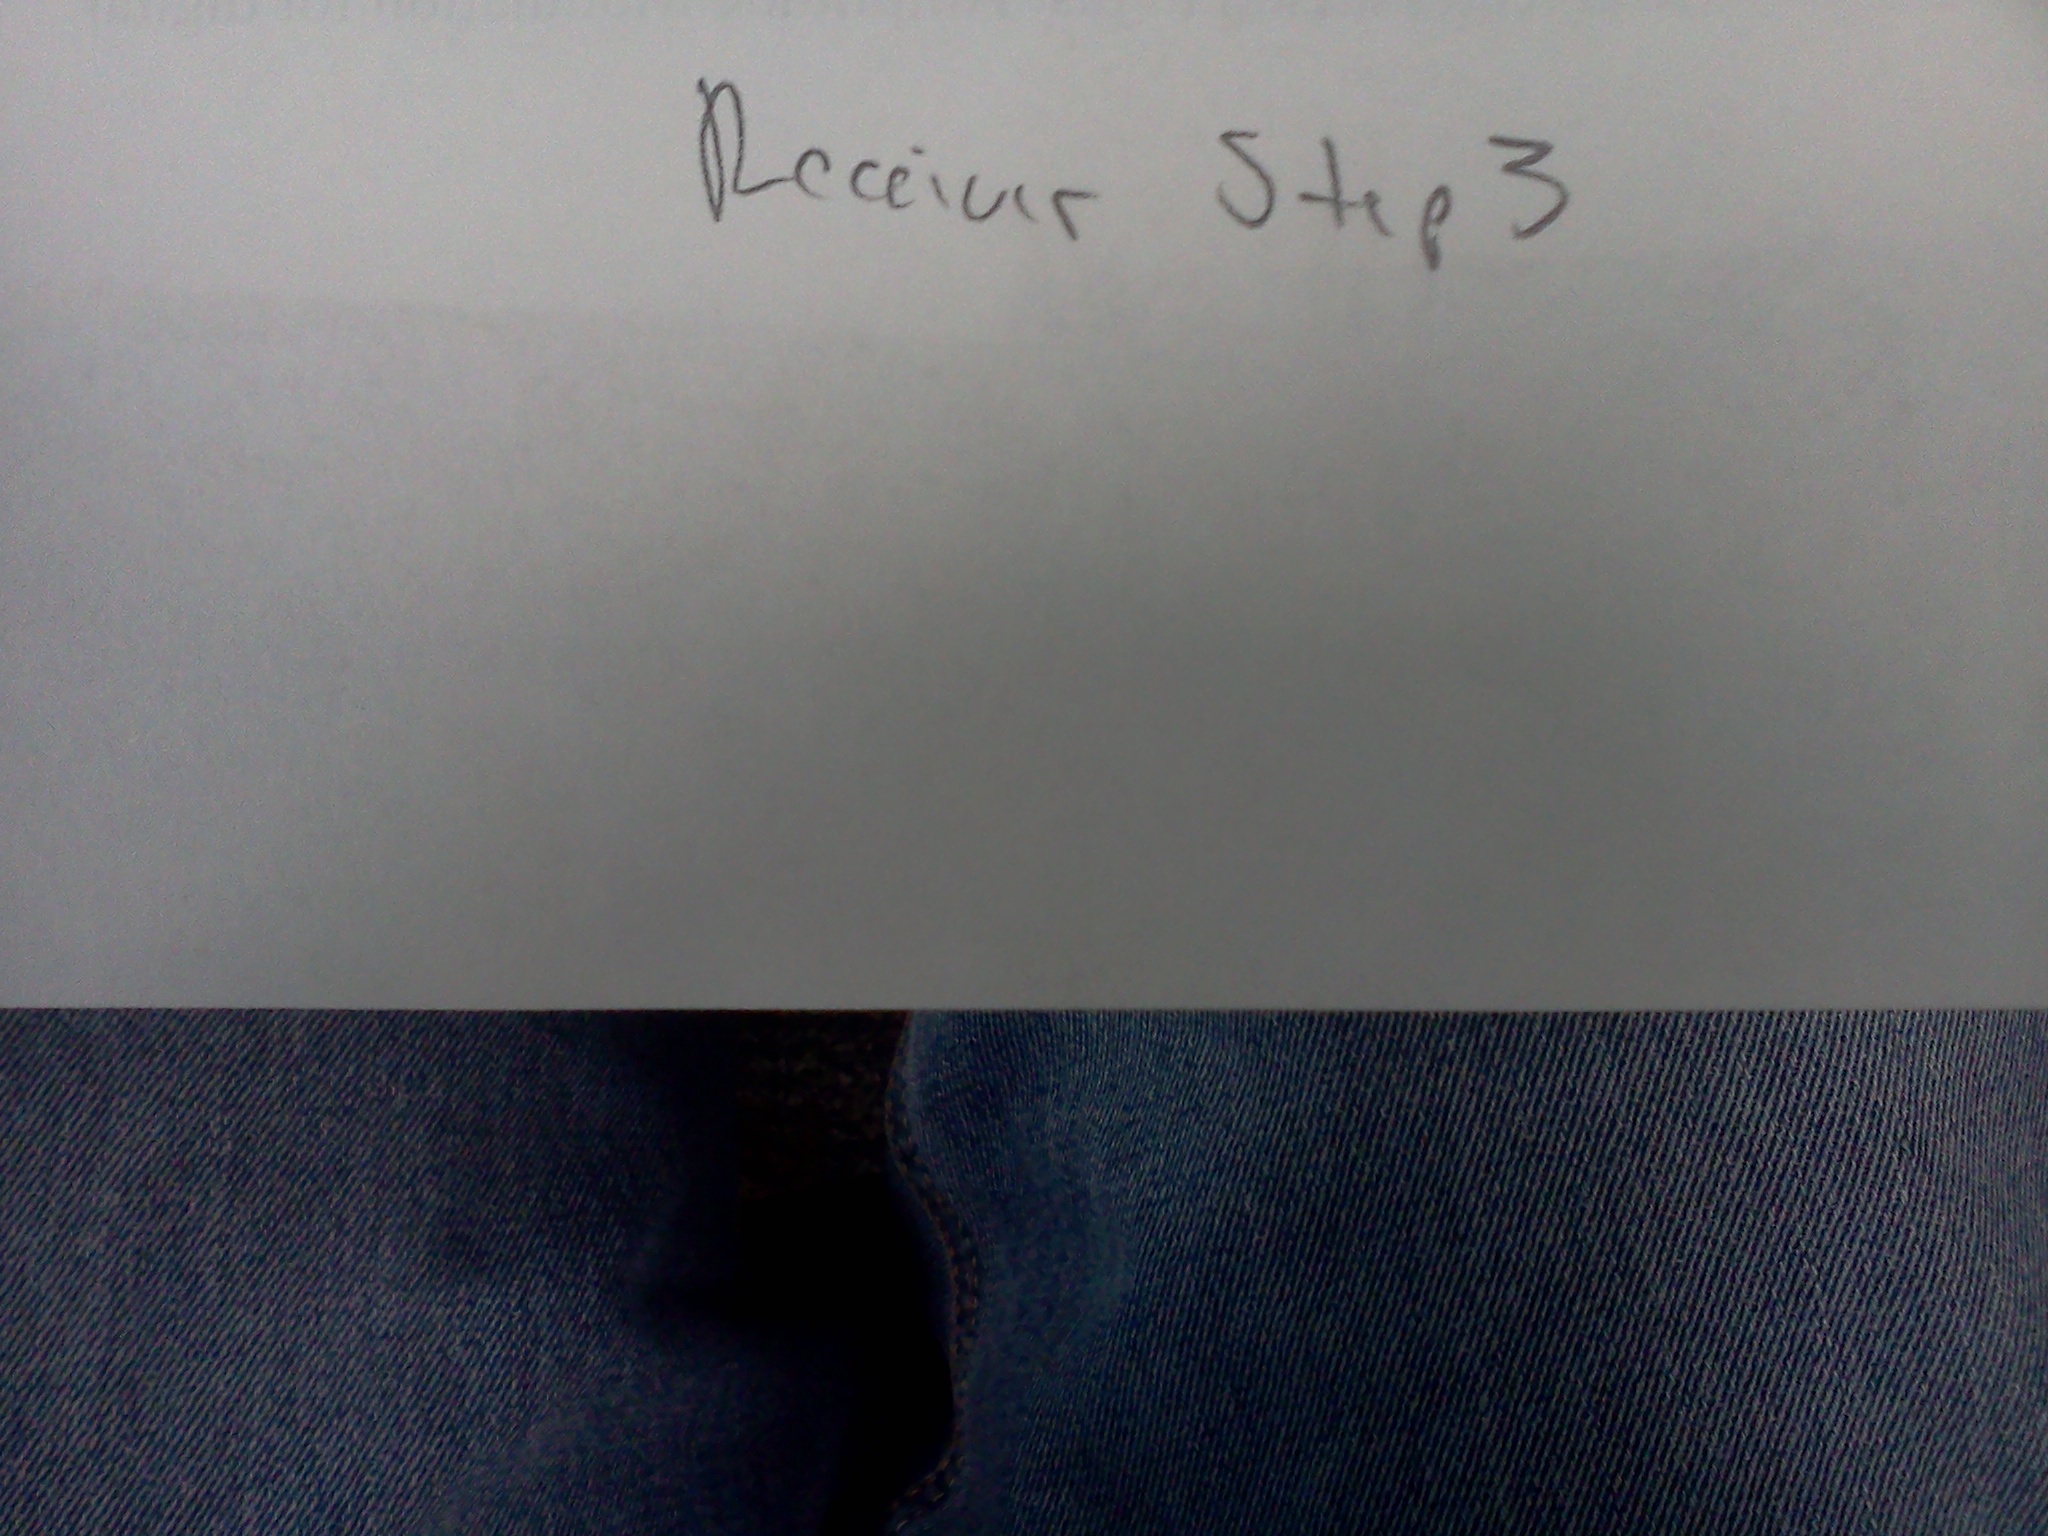 Receiver Step 3